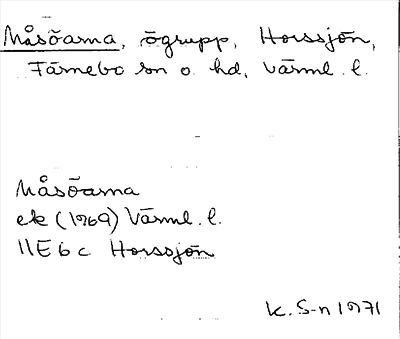 Måsöarna, ögrupp, Horssjön,
Färnebo sn o. hd, Värml. l.
Måsöarna
ek (1969) Värml. l.
11E 6 c Horssjön
K. S-n 1971